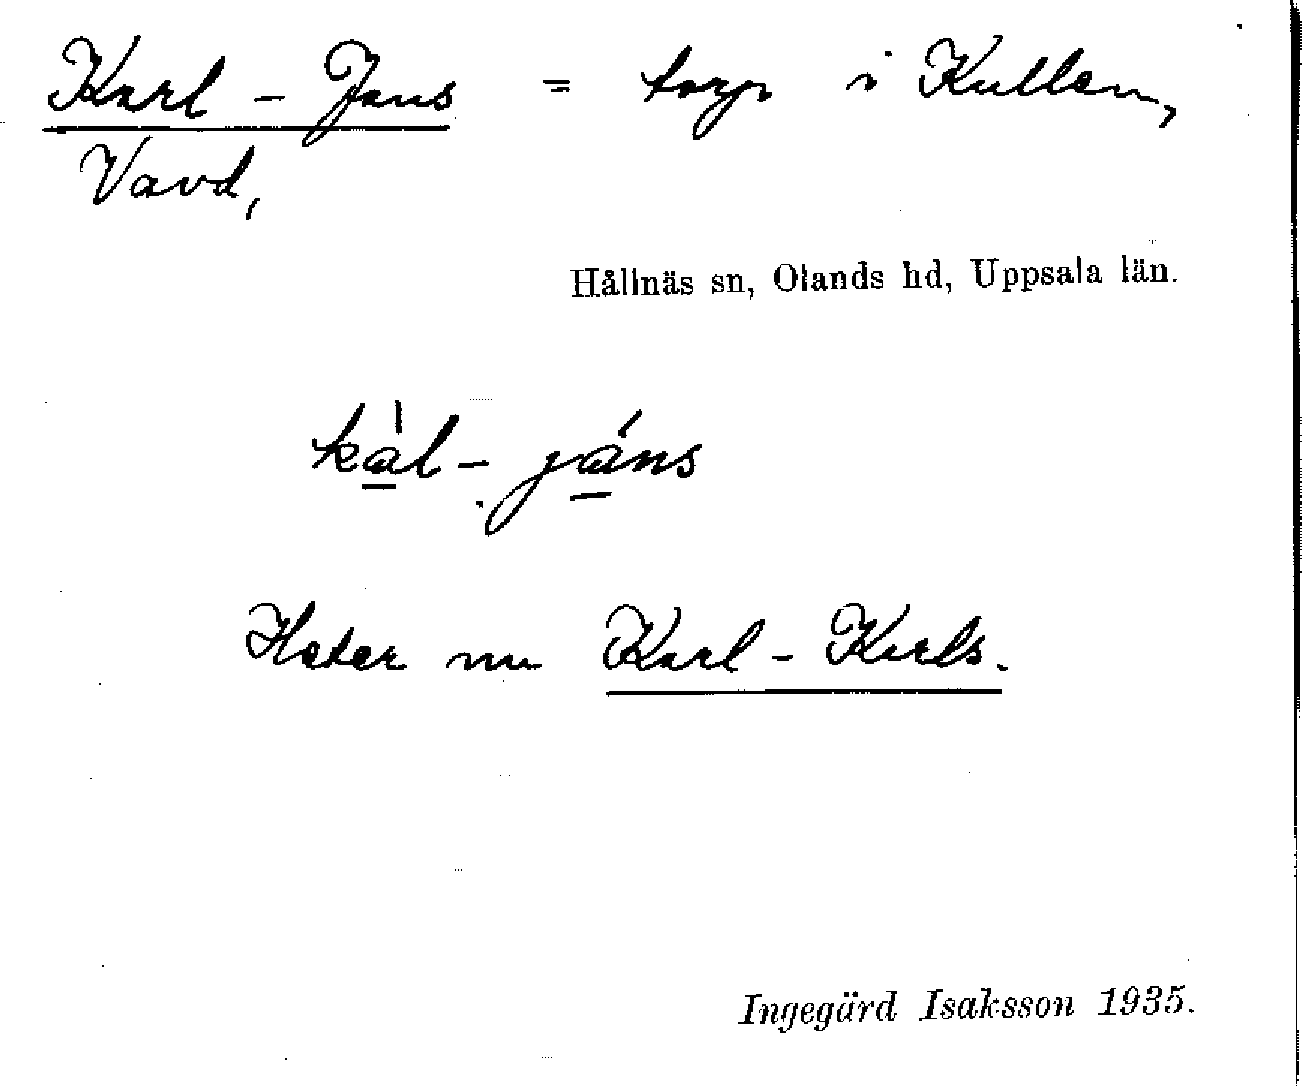 Karl - Jans = torp i Kullen,
Vavd,
Hållnäs sn, Olands hd, Uppsala län.
kàl - jáns
Heter nu Karl - Karls.
Ingegärd Isaksson 1935.